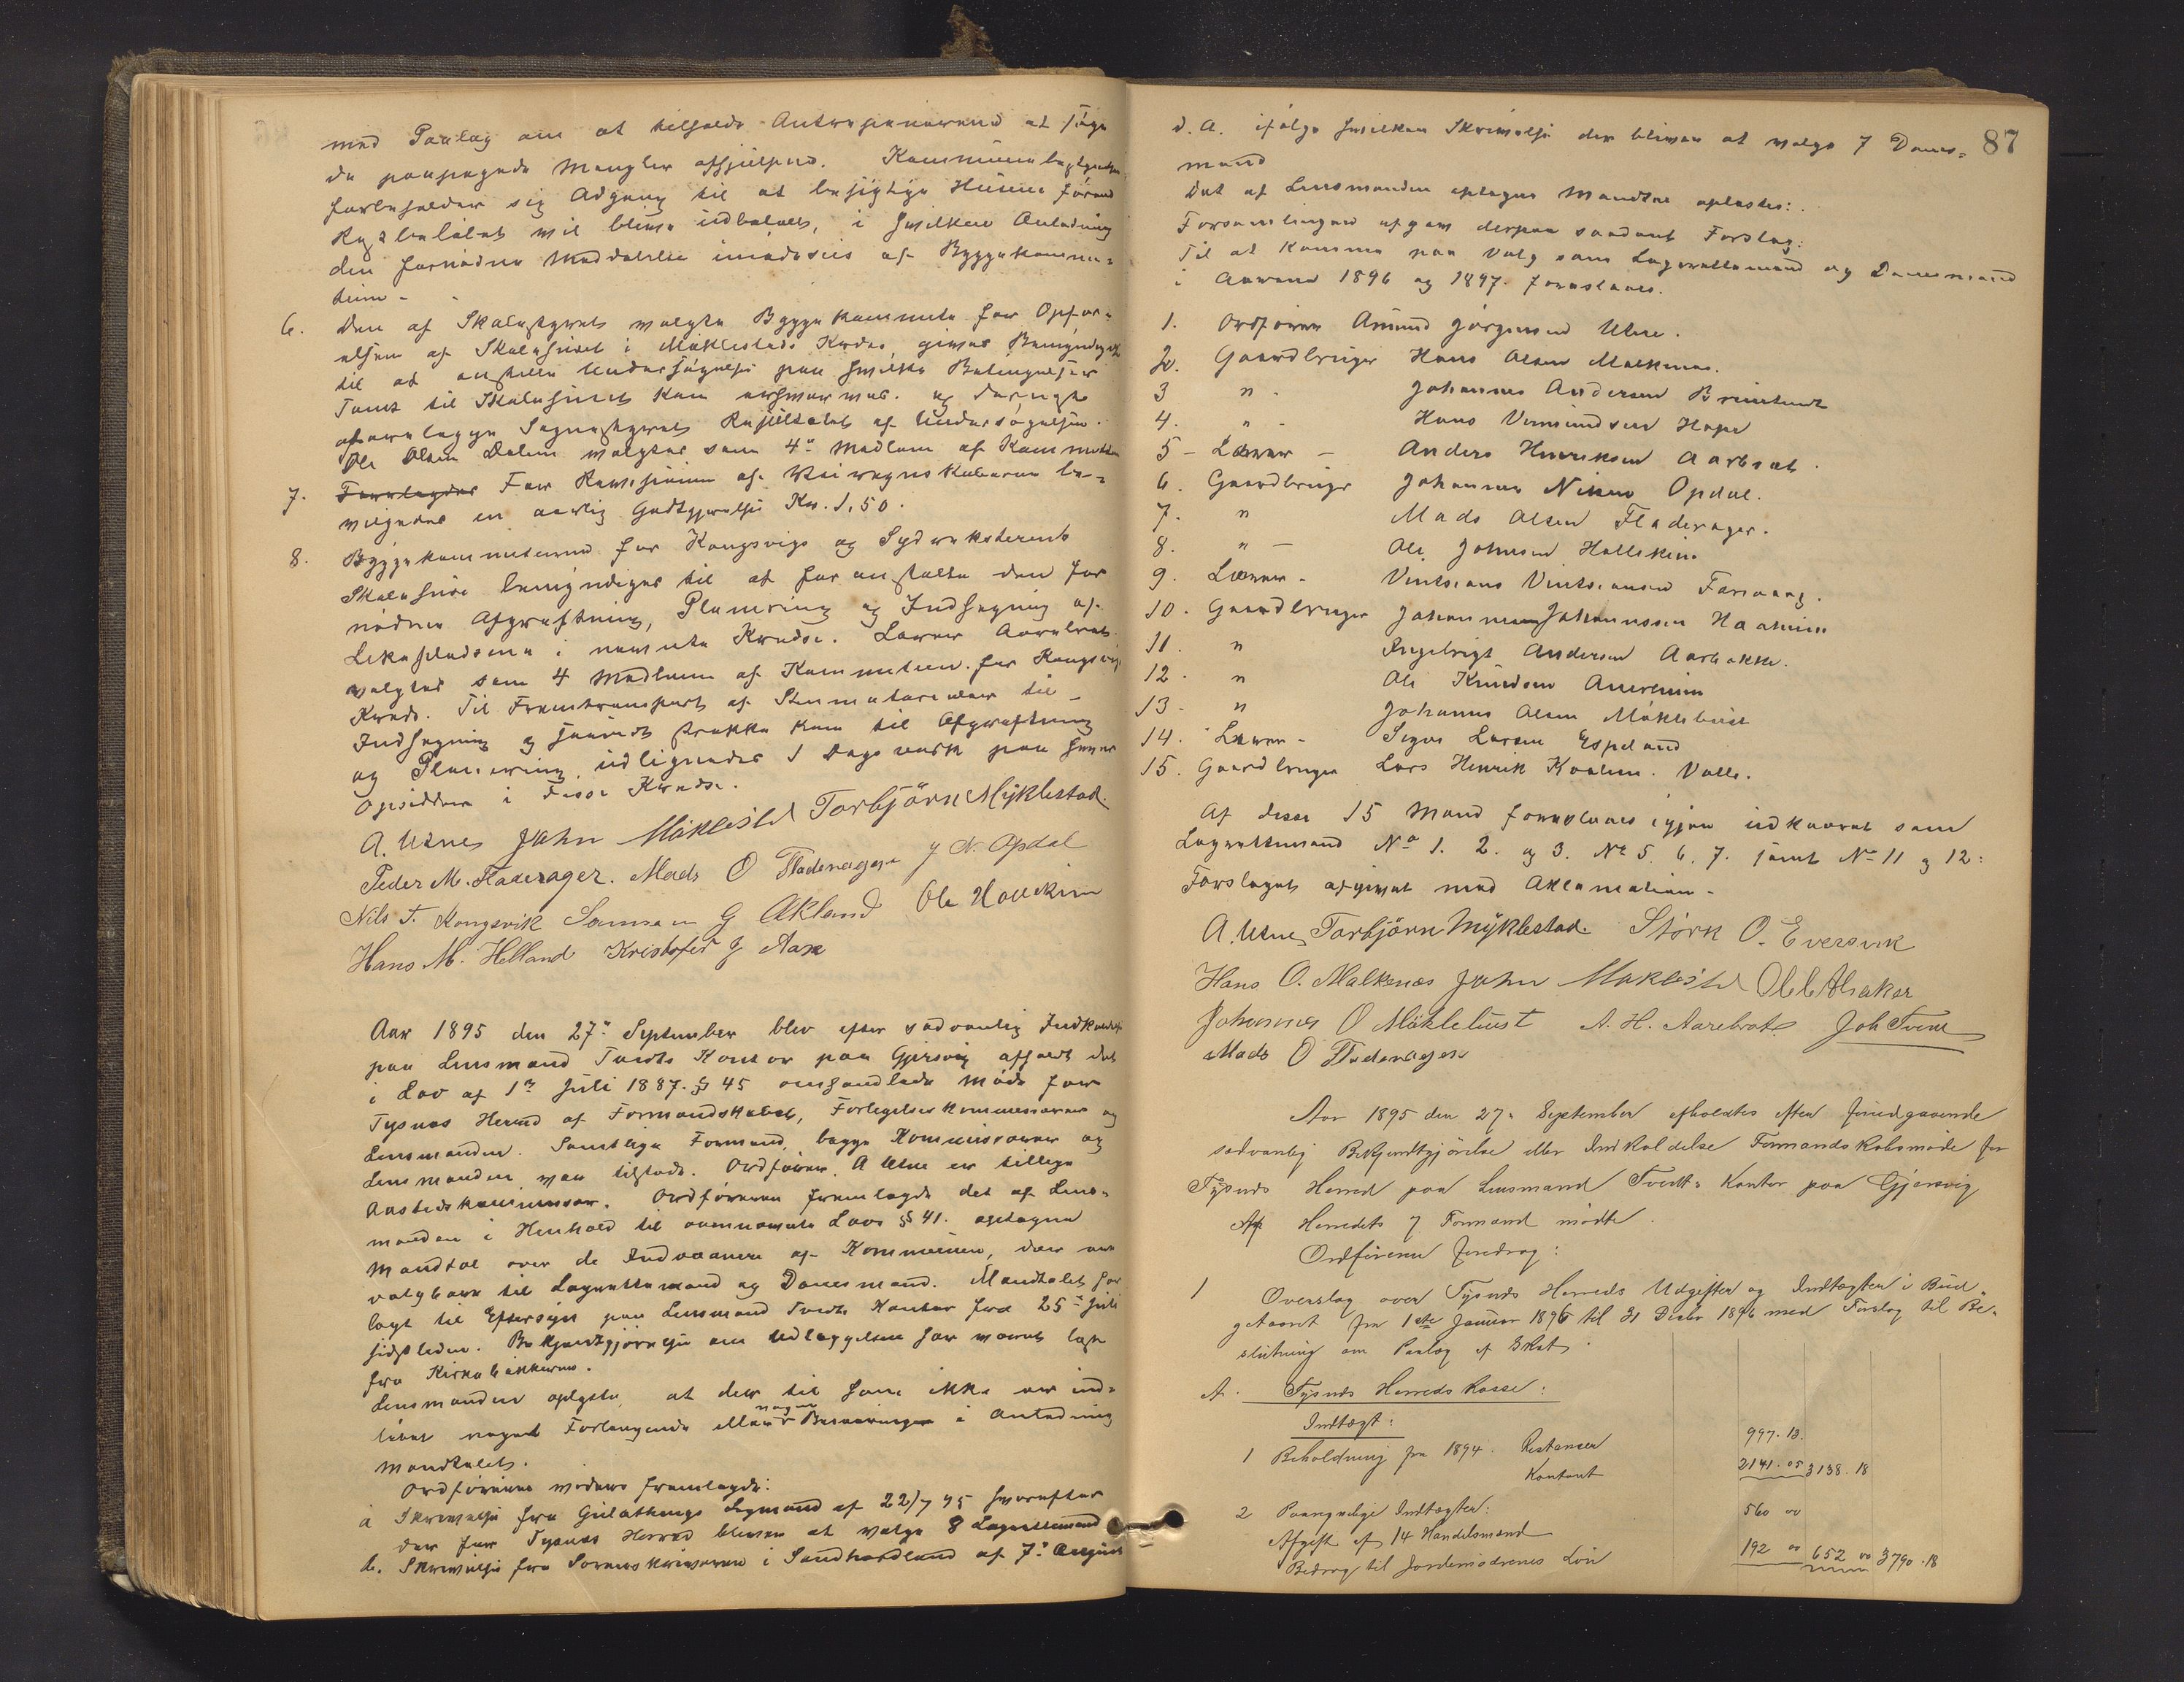 med Paalag om at tilholde Entreprenørerne at søge
de paapegede Mangler afhjulpne. Kommunebestyrelsen
forbeholder sig Adgang til at besigtige Husene førend
Restbeløbet vil blive udbetalt, i hvilken Anledning
den fornødne Meddelelse imødesees af Byggekommi-
teen.
6. Den af Skolestyret valgte Byggekommite for Opfør-
elsen af Skolehuset i Møklestads Kreds gives Bemyndigelse
til at anstille Undersøgelse paa hvilke Betingelser
Tomt til Skolehuset kan erhverves. og derefter
forelægge Sognestyret Resultatet af Undersøgelsen.
Ole Olsen Dalen valgtes som 4de Medlem af Kommiteen
7. Foreløgdes For Revisionen af Veiregnskaberne be-
vilgedes en aarlig Godtgjørelse Kr. 1,50.
8. Byggekommiteerne for Kongsvigs og Sydvesterends
Skolehuse bemyndiges til at foranstalte den for
nødne Afgrøftning, Planering og Indhegning af
Lekepladsene i nævnte Kredse. Lærer Aarebrot
valgtes som 4 Medlem af Kommiteen for Kongsvig
Kreds. Til Fremtransport af Stenmaterialer til
Indhegning og saavidt strække kan til Afgrøftning
og Planering, udlignedes 1 Dagsverk paa hver
Opsidder i disse Kredse.
A. Utne John Møklebust Torbjørn Myklestad.
Peder M. Fladerager. Mads O Fladerager J N. Opdal
Nils T. Kongsvik Samson G Økland Ole Hollekim
Hans M. Helland Kristofer G Aase
Aar 1895 den 27de September blev efter sædvanlig Indkaldelse
paa Lensmand Tvedts Kontor paa Gjersvig afholdt det
i Lov af 1ste Juli 1887. § 45 omhandlede Møde for
Tysnes Herred af Formandskabet, Forligelseskommissærer og
Lensmanden. Samtlige Formænd, begge Kommissærer og
Lensmanden var tilstede. Ordfører A Utne er tillige
Aastedskommissær. Ordføreren fremlagde det af Lens-
manden i Henhold til ovennævnte Lovs § 41. optagne
Mandtal over de Indvaanere af Kommunen, der er
valgbare til Lagrettemænd og Domsmænd. Mandtalet har
lagt til Eftersyn paa Lensmand Tvedts Kontor fra 25de Juli
sidstleden. Bekjendtgjørelse om Udlæggelsen har været læst
fra Kirkebakkerne.
Lensmanden oplyste, at der til ham ikke var ind-
løbet noget Forlangende eller nogen Bemærkninger i Anledning
Mandtalet.
Ordføreren videre fremlagde:
a Skrivelse fra Gulathings Lagmand af 22/7 95 hvorefter
der for Tysnes Herred bliver at vælge 8 Lagrettemænd
b. Skrivelse fra Sorenskriveren i Søndhordland af 7de August
87
d. A. ifølge hvilken Skrivelse der bliver at vælge 7 Doms-
mænd
Det af Lensmanden optagne Mandtal oplæstes:
Forsamlingen afgav derpaa saadant Forslag:
Til at komme paa Valg som Lagrettemænd og Domsmænd
i Aarene 1896 og 1897. foreslaaes.
1. Ordfører Amund Jørgensen Utne.
2. Gaardbruger Hans Olsen Malkenes.
3 " - Johannes Andersen Breistuedt
4. " - Hans Vemundsen Hope
5 - Lærer - Anders Henriksen Aarbrot.
6. Gaardbruger Johannes Nilsen Opdal.
7. " Mads Olsen Fladerager.
8. " - Ole Johnsen Hollekim
9. Lærer - Vintsens Vintsensen Farevaag.
10. Gaardbruger Johannes Johannessen Haaheim
11. " Ingebrigt Andersen Aarbakke.
12. " Ole Knudsen Aneveim
13 - " Johannes Olsen Møklebust
14. Lærer - Sigur Larsen Espeland
15. Gaardbruger Lars Henrik Koolen. Valle.
Af disse 15 Mænd foreslaaes igjen udkaaret som
Lagrettemænd No 1. 2. og 3. No 5. 6. 7. samt No 11 og 12:
Forslaget afgivet med Aklamation.
A. Utne, Torbjørn Myklestad. Størk O. Eversvik
Hans O. Malkenæs John Møklebust O C C Alsaker
Johannes O Møklebust A. H. Aarebrot Joh Tveit
Mads O Fladerager
Aar 1895 den 27de September afholdtes efter foregaaende
sædvanlig Bekjendtgjørelse eller Indkaldelse Formandskabsmøde for
Tysnes Herred paa Lensmand Tvedts Kontor paa Gjersvig
Af Herredets 7 Formænd mødte.
Ordføreren foredrog:
1 Overslag over Tysnes Herreds Udgifter og Indtægter i Bud-
getaaret fra 1ste Januar 1896 til 31 Decbr 1896 med Forslag til Be-
slutning om Paalæg af Skat.
A. Tysnes Herreds kasse:
Indtægt:
1 Beholdning fra 1894. Restancer 997.13.
Kontant 2141.05 3138.18
2 Paaregnelige Indtægter:
Afgift af 14 Handelsmænd 560 00
Bidrag til Jordemødrenes Løn 192 00 652 00 3790.18